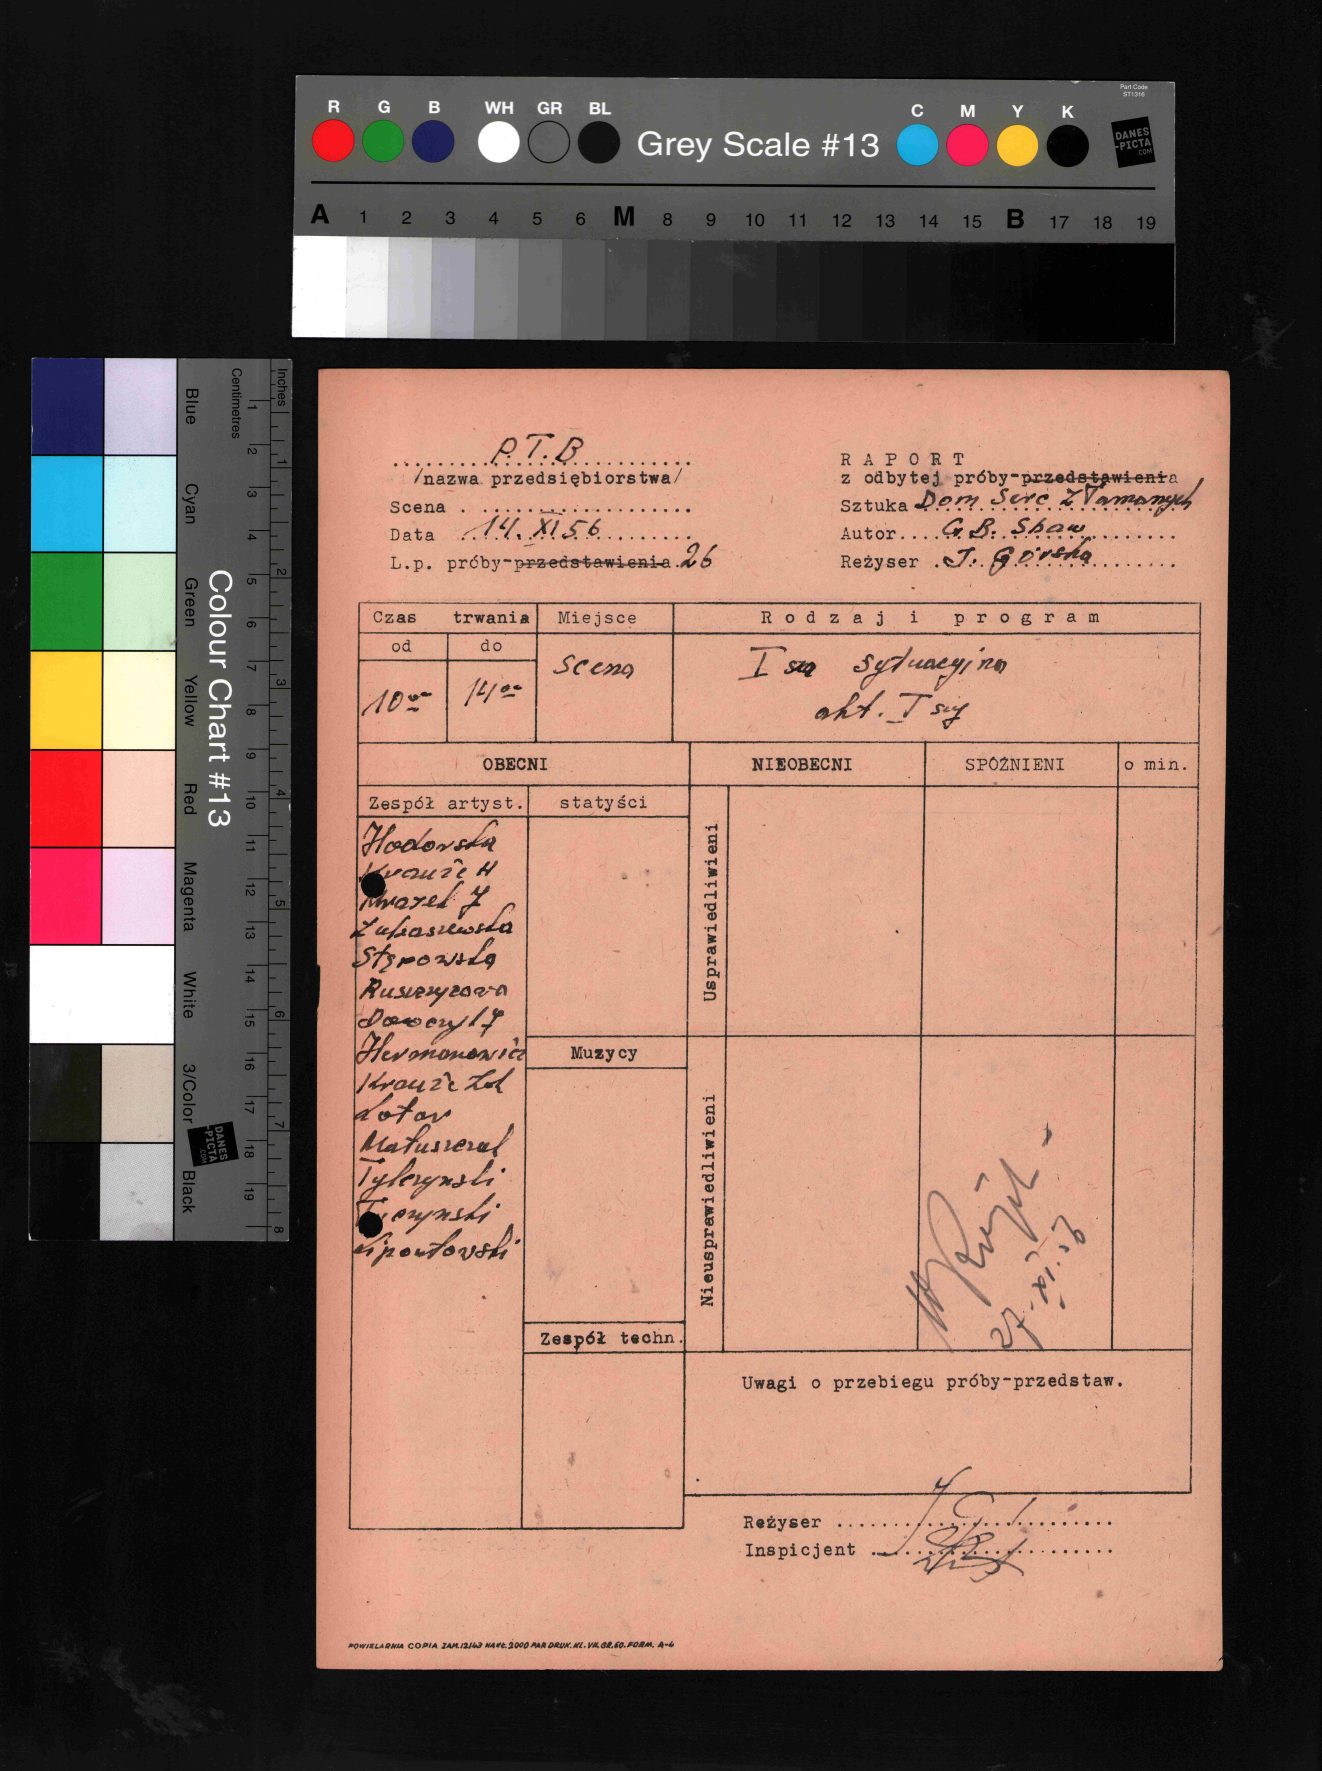 Part Code
ST1316
R G B WH GR BL
Grey Scale #13
C M Y K
DANES
-PICTA
.COM
A 1 2 3 4 5 6 M 8 9 10 11 12 13 14 15 B 17 18 19
Colour Chart #13
Blue
Cyan
Green
Yellow
Red
Magenta
White
3/Color
Black
Centimetres
1 2 3 4 5 6 7 8 9 10 11 12 13 14 15 16 17 18 19
Inches
1 2 3 4 5 6 7 8
DANES
-PICTA
.COM
P.T.B
/nazwa przedsiębiorstwa/
Scena
Data 14. XI 56
L.p. próby-przedstawienia 26
R A P O R T
z odbytej próby-przedstawienia
Sztuka Dom Serc Złamanych
Autor G. B. Shaw
Reżyser J. Górska
Czas trwania
od do
10 00 14 00
Miejsce
Scena
R o d z a j i p r o g r a m
I sza sytuacyjna
akt. I szy
OBECNI
NIEOBECNI
SPÓŹNIENI
o min.
Zespół artyst.
statyści
Hodorska
Krauze H
Mrozek J
Łukaszewska
Stępowska
Ruszczycowa
Hermanowicz
Lotar
Matuszczak
Tylczyński
Lipontowski
Muzycy
Zespół techn.
Usprawiedliwieni
Nieusprawiedliwieni
27. XI. 56
Uwagi o przebiegu próby-przedstaw.
Reżyser
Inspicjent
POWIELARNIA COPIA ZAM. 12143 NAKŁ. 2000 PAR DRUK. KL. VII. GR. 60. FORM. A-4